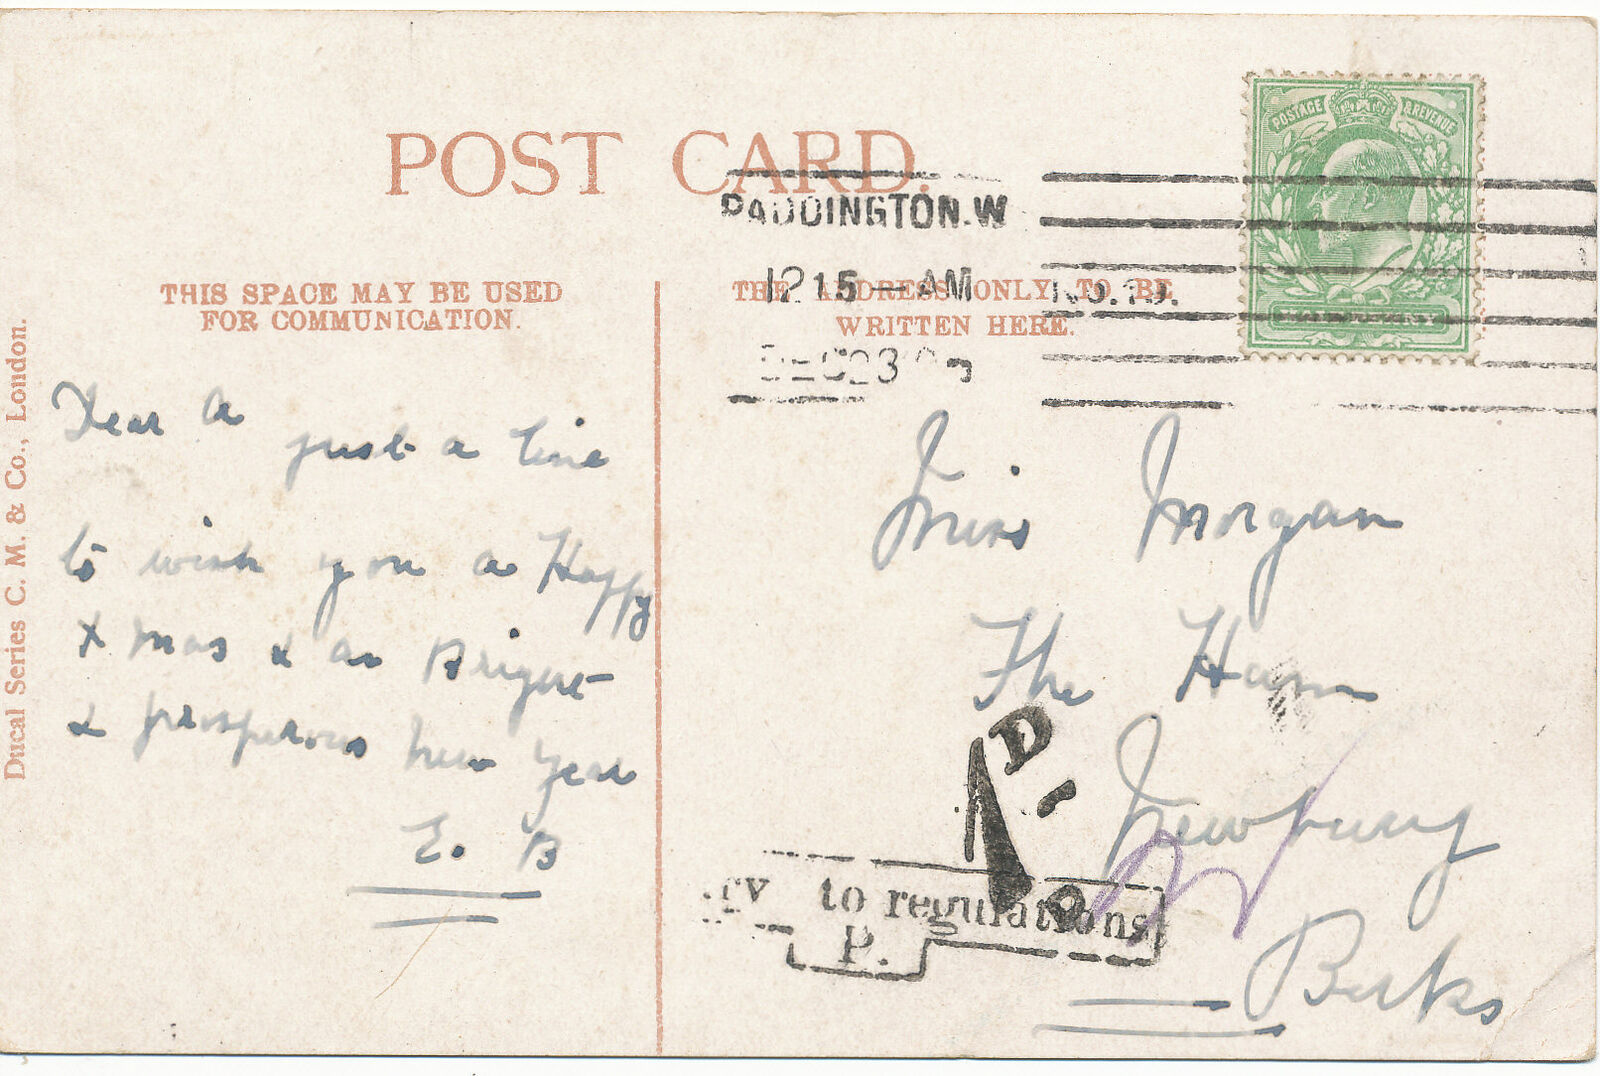 POST CARD.
POSTAGE & REVENUE
PADDINGTON.W
12 15 — AM
DEC 23
THIS SPACE MAY BE USED
FOR COMMUNICATION.
THE ADDRESS ONLY TO BE
WRITTEN HERE.
Ducal Series C. M. & Co., London.
Dear A
just a line
to wish you a Happy
X mas & a Bright
& prosperous new year
E. B
Miss Morgan
The Ham
Newbury
Berks
1D.
to regulations
P.